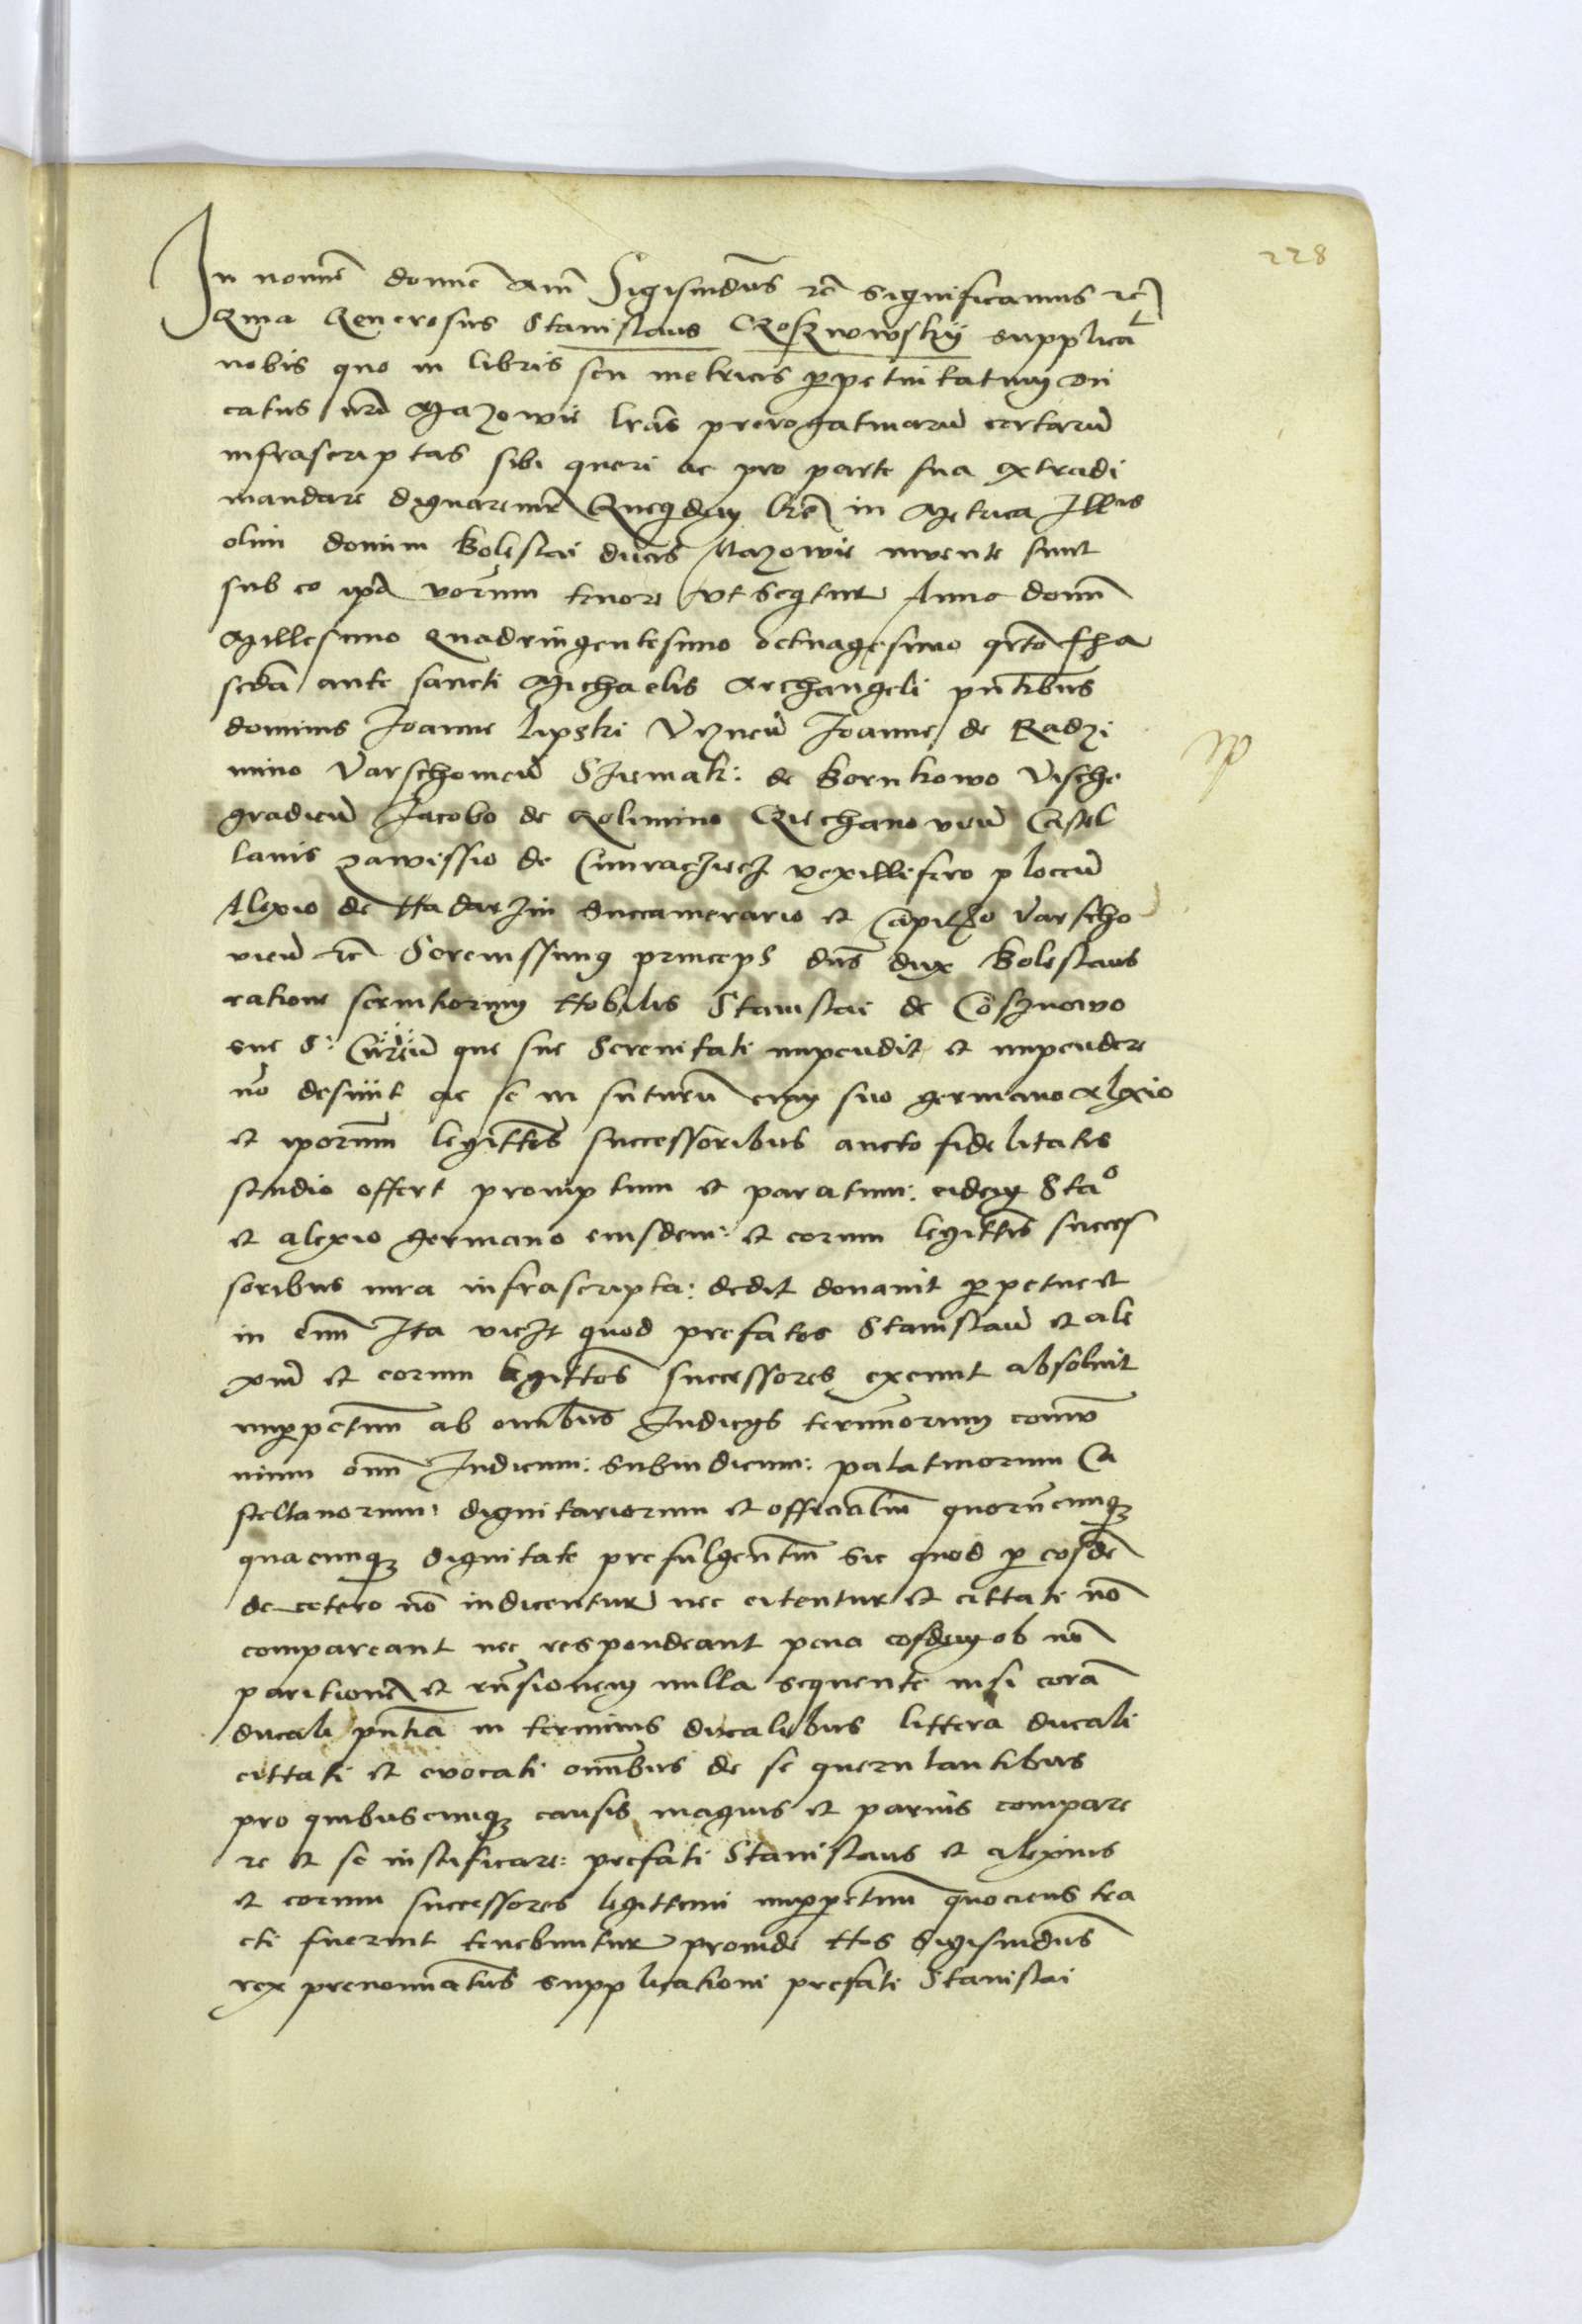 228
In nomine domini Amen Sigismundus etc significamus etc
Quia Generosus Stanislaus Cosznowskij supplicavit
nobis quo in libris seu metricis perpetuitatum Du
catus nri Mazowie lras prerogativarum certarum
infrascriptas sibi queri ac pro parte sua extradi
mandare dignaremur Quequidem lre in Metrica Illris
olim domini Boleslai ducis Mazowie invente sunt
sub eo ipo verum tenore vt sequitur Anno domini
Millesimo quadringentesimo octuagesimo qrto fria
scda ante sancti Michaelis Archangeli pntibus
dominis Joanne lipski Vyznen Joanne de Radzi
mino Varschovien Sziemak: de Bornkowo Vische
gradien Jacobo de Golimino Ciechanovien Castel
lanis zawissio de vexillifero plocen
Alexio de Nadarzin Succamerario et Capitneo Varscho
vien etc Serenissimus princeps dns dux Boleslaus
ratione servitiorum Nobilis Stanislai de Cosznowo
sue S: que sue Serenitati impendit et impendere
no desinit ac se in futurum cum suo germano Alexio
et iporum legittimis successoribus aucto fidelitatis
studio offert promptum et paratum: eidem Stao
et Alexio germano eiusdem: et eorum legittimis succes
soribus iura infrascripta: dedit donavit perpetue et
in evum Ita viczt quod prefatos Stanislaum et Ale
xium et eorum legittimos successores exemit absolvit
imperpetuum ab omnibus Iudicys terminorum commu
nium omnium Iudicum: Subiudicum: palatinorum Ca
stellanorum: dignitariorum et officialium quorumcunque
quacunque dignitate prefulgentium sic quod per eosdem
de cetero no iudicentur nec citentur et cittati no
compareant nec respondeant pena eosdem ob no
paritionem et rnsionem nulla sequente nisi coram
ducali pntia in terminis ducalibus littera ducali
cittati et evocati omnibus de se querulantibus
pro quibuscunque causis magnis et parvis compare
re et se iustificare: prefati Stanislaus et Alexius
et eorum successores legittimi imperpetuum quociens tra
cti fuerint tenebuntur proinde Nos Sigismundus
rex prenominatus supplicationi prefati Stanislai